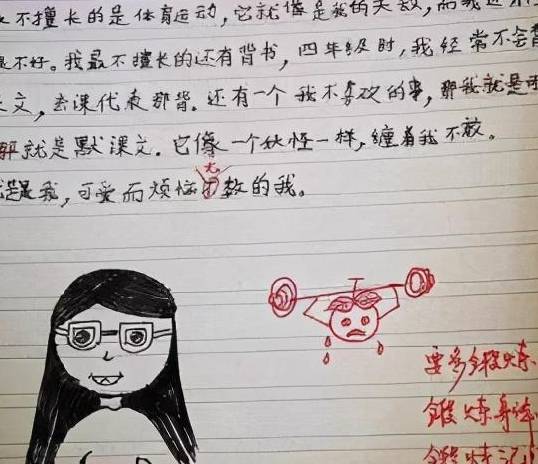 不擅长的是体育运动，它就像是我的天敌，而我还
不好。我最不擅长的还有背书，四年级时，我经常不会背
文，去课代表那背。还有一个我不喜欢的事，那我就是
就是默课文。它像一个妖怪一样，缠着我不放。
是我，可爱而烦恼无数的我。
要多锻炼
锻炼身体
锻炼记